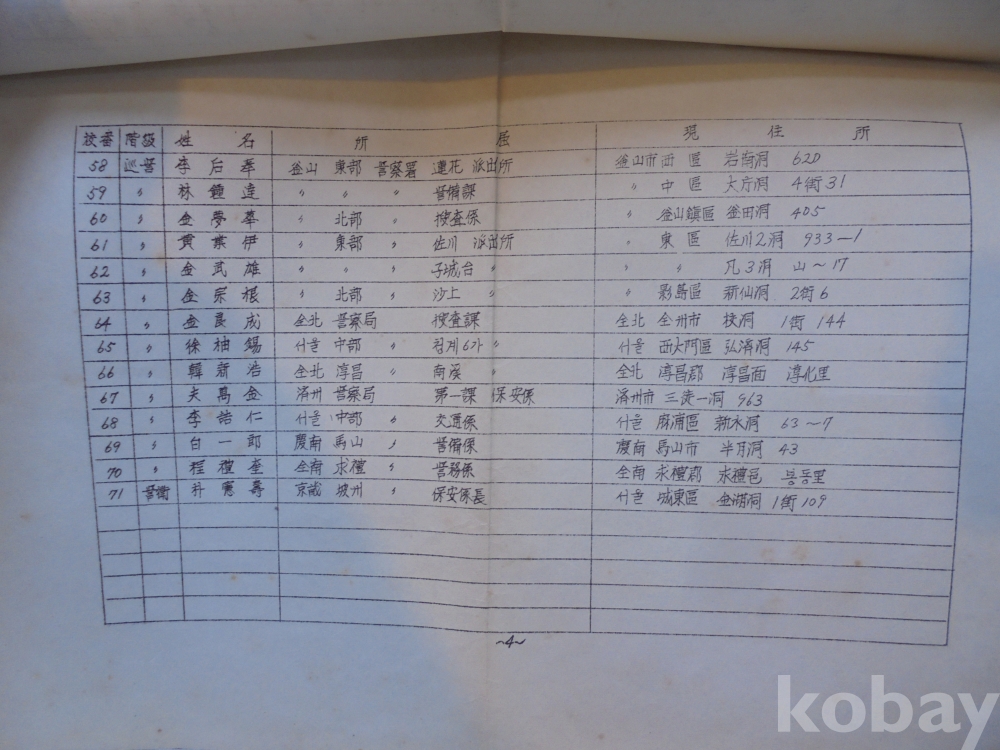 校番 階級 姓 名 所 屬 現 住 所
58 巡警 李 后 奉 釜山 東部 警察署 蓮花 派出所 釜山市 西 區 岩南洞 620
59 〃 林 鍾 達 〃 〃 〃 警備課 〃 中 區 大庁洞 4街 31
60 〃 金 夢 華 〃 北部 〃 搜査係 〃 釜山鎭區 釜田洞 405
61 〃 黃 葉 伊 〃 東部 〃 佐川 派出所 〃 東 區 佐川2洞 933-1
62 〃 金 武 雄 〃 〃 〃 子城台 〃 〃 〃 凡3洞 山~17
63 〃 金 宗 根 〃 北部 〃 沙上 〃 〃 影島區 新仙洞 2街 6
64 〃 金 良 成 全北 警察局 搜査課 全北 全州市 校洞 1街 144
65 〃 徐 柚 錫 서울 中部 〃 청계6가 〃 서울 西大門區 弘濟洞 145
66 〃 韓 新 浩 全北 淳昌 〃 南溪 〃 全北 淳昌郡 淳昌面 淳化里
67 〃 夫 萬 金 済州 警察局 第一課 保安係 済州市 三徒一洞 963
68 〃 李 誥 仁 서울 中部 〃 交通係 서울 麻浦區 新水洞 63~7
69 〃 白 一 郎 慶南 馬山 〃 警備係 慶南 馬山市 半月洞 43
70 〃 程 禮 奎 全南 求禮 〃 警務係 全南 求禮郡 求禮邑 봉동里
71 警衛 朴 憲 壽 京畿 坡州 〃 保安係長 서울 城東區 金湖洞 1街 109
~4~
kobay